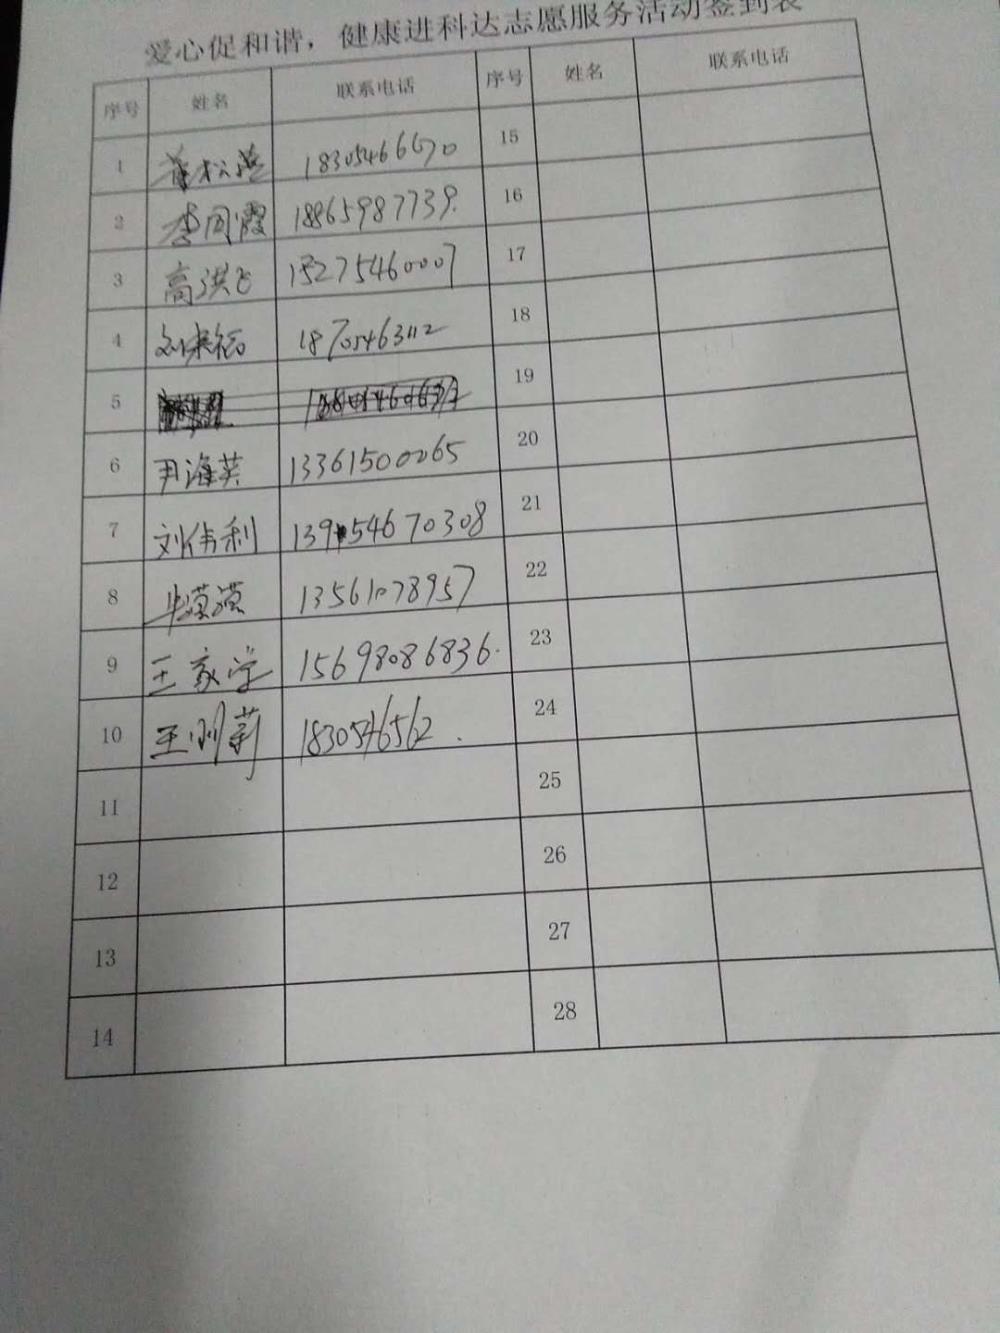 爱心促和谐，健康进科达志愿服务活动签到表
序号 姓名 联系电话 序号 姓名 联系电话
1 18305466670 15
2 李同霞 18865987739. 16
3 高洪飞 15275460007 17
4 18705463112 18
5 19
6 尹海英 13361500265 20
7 刘伟利 13954670308 21
8 毕滢滢 13561078957 22
9 王家学 15698086836. 23
10 王刚莉 1830546562. 24
11 25
12 26
13 27
14 28